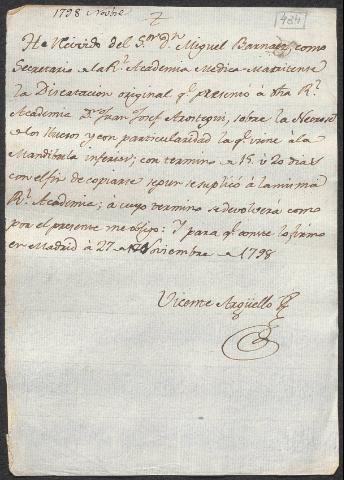 1798 Novbre
484
He Recivido del S.or D.n Miguel Barnades, como
Secretario de la R.l Academia Medica-Matritense
la Disertacion original q.e presentó á dha R.l
Academia D.n Juan Josef Arostegui, sobre la Necrose
de los Huesos y con particularidad la q.e viene à la
Mandibula inferior; con termino de 15 ú 20 dias
con el fin de copiarse segun se suplicó á la misma
R.l Academia; à cuyo termino se devolverá como
por el presente me obligo: Y para q.e conste lo firmo
en Madrid à 27 de Noviembre de 1798
Vicente Argüello